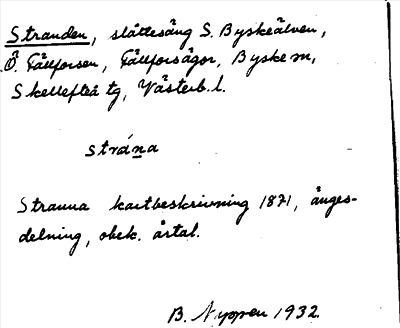 Stranden, slåttesäng S. Byskeälven,
Ö. Fällforsen, Fällforsågor, Byske sn,
Skellefteå tg, Västerb. l.
strána
Stranna kartbeskrivning 1871, änges-
delning, obek. årtal.
B. Nyppen 1932.